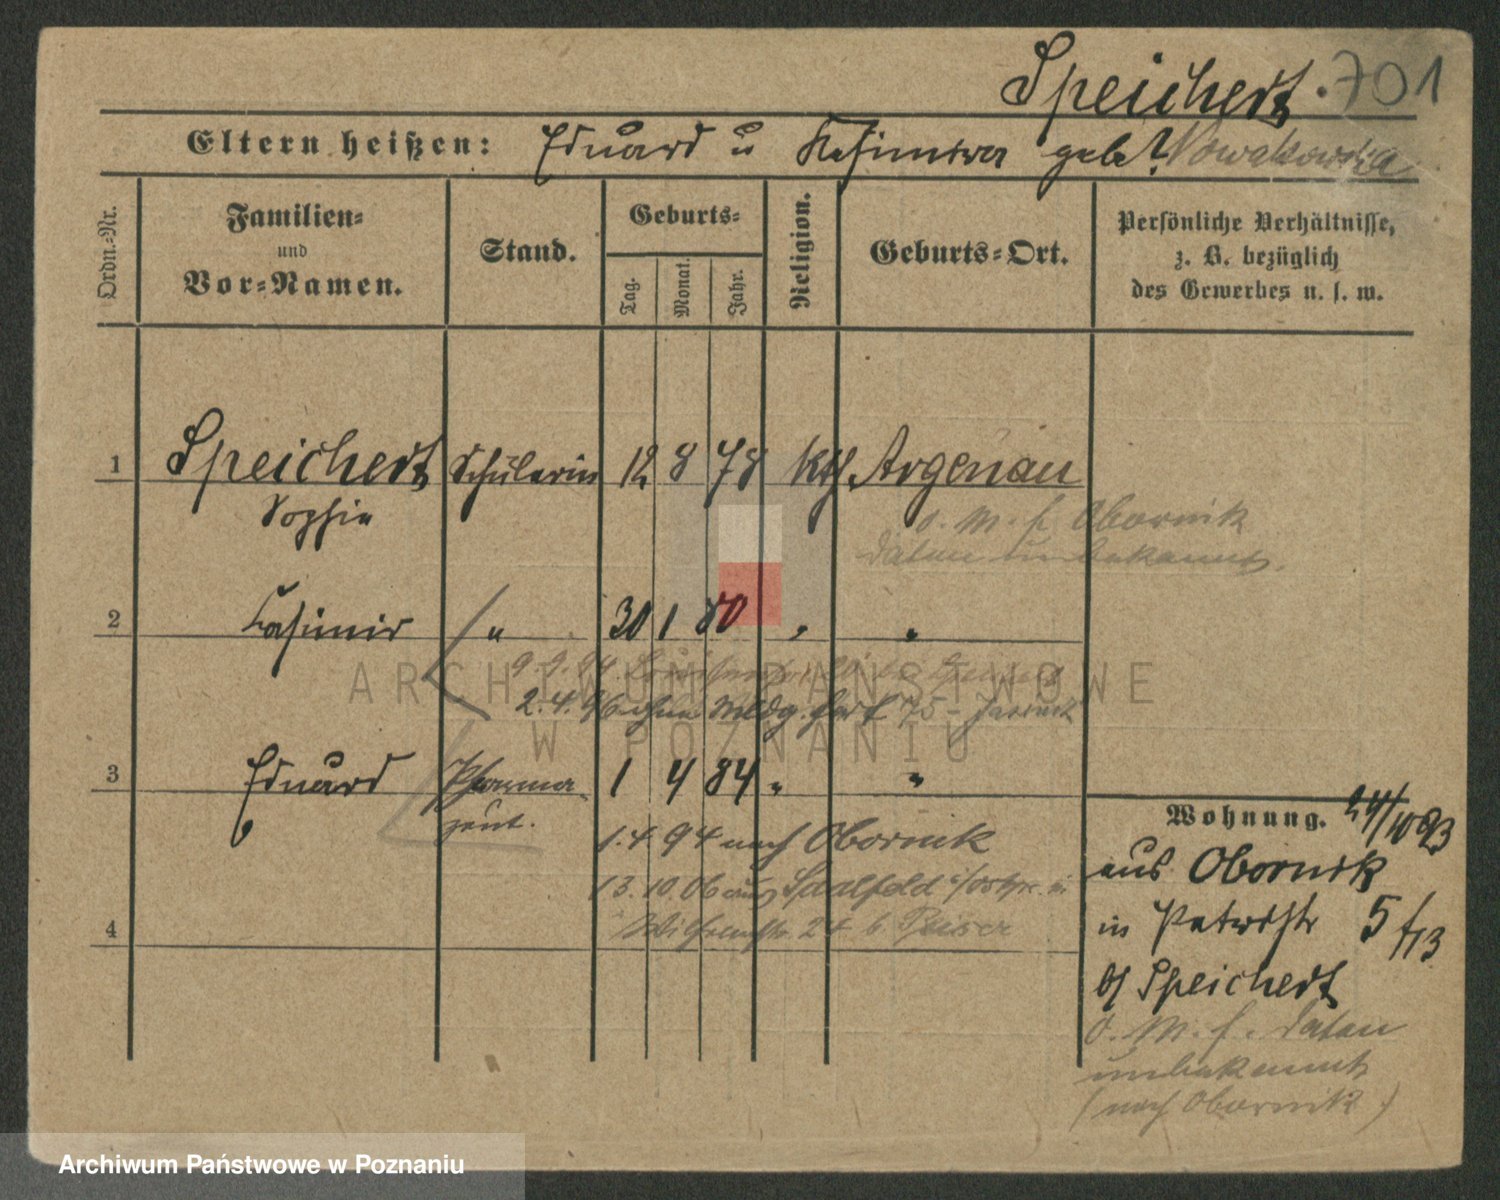 Speichert. 701
Eltern heißen: Eduard u Kasimira geb? Nowakowska
Ordn.-Nr.
Familien-
und
Vor-Namen.
Stand.
Geburts-
Tag.
Monat.
Jahr.
Religion.
Geburts-Ort.
Persönliche Verhältnisse,
z. B. bezüglich
des Gewerbes u. s. w.
1 Speichert Schülerin 12 8 78 kth. Argenau
Sophie
o. M. f. Obornik
Datum unbekannt.
2 Casimir " 30 1 80 " "
9. 9. 94.
2. 4. 96 ohne Meldg. fort 75 -
3 Eduard Pharma- 1 4 84 " "
zeut.
1. 4 94 nach Obornik
13. 10. 06 aus Saalfeld /Ostpr. in
Wilhelmstr. 24 b. Peiser
4
Wohnung. 24/10 93
aus Obornik
in Petristr 5
b/ Speichert
o. M. f. Datum
unbekannt
(nach Obornik)
ARCHIWUM PAŃSTWOWE
W POZNANIU
Archiwum Państwowe w Poznaniu